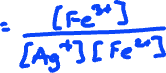 = [Fe³⁺] / [Ag⁺][Fe²⁺]